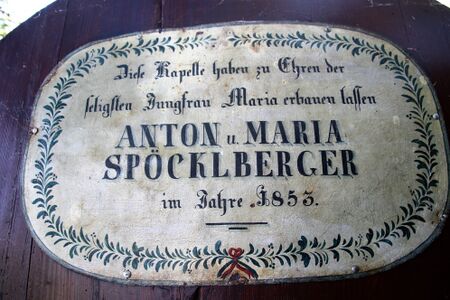 Diese Kapelle haben zu Ehren der
seligsten Jungfrau Maria erbauen lassen
ANTON u. MARIA
SPÖCKLBERGER
im Jahre 1853.